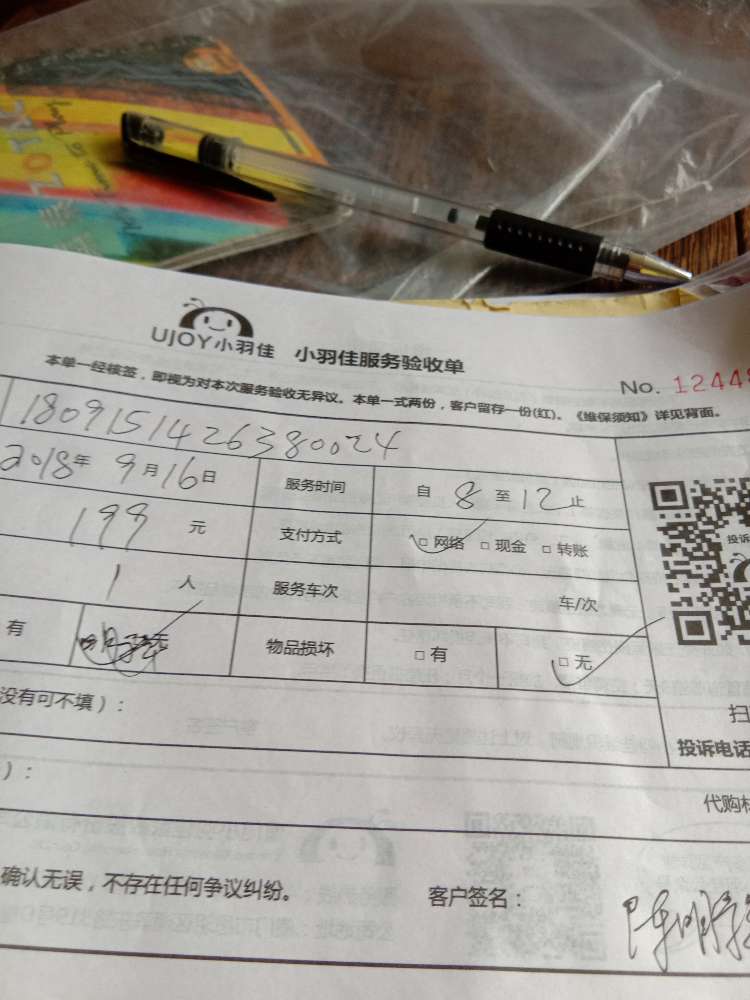 UJOY小羽佳 小羽佳服务验收单
No. 12448
本单一经核签，即视为对本次服务验收无异议。本单一式两份，客户留存一份(红)。《维保须知》详见背面。
1809151426380024
2018年 9月16日 服务时间 自 8 至 12 止
199 元 支付方式 □ 网络 □ 现金 □ 转账
投诉
1 人 服务车次 车/次
有 无 物品损坏 □ 有 □ 无
没有可不填）：
扫
投诉电话
）：
代购
确认无误，不存在任何争议纠纷。 客户签名：